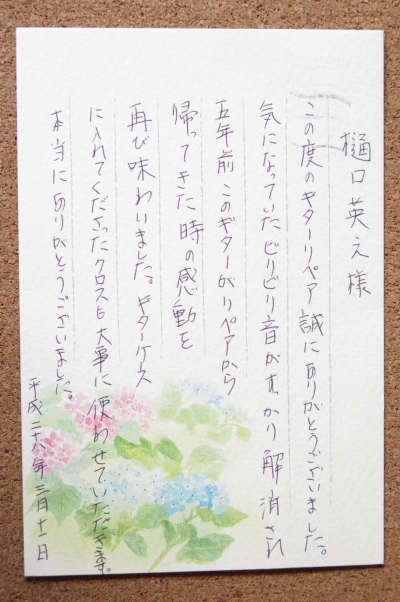 樋口英之様
この度のギターリペア誠にありがとうございました。
気になっていたビリビリ音がすっかり解消され
五年前このギターがリペアから
帰ってきた時の感動を
再び味わいました。ギターケース
に入れてくださったクロスも大事に使わせていただきます。
本当にありがとうございました。
平成二十八年三月十一日